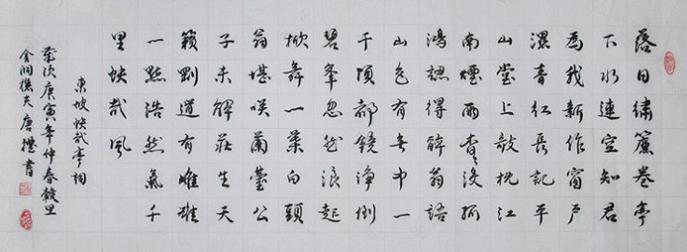 落日繡簾卷亭
下水連空知君
為我新作窗戶
濕青紅長記平
山堂上敧枕江
南煙雨杳々沒孤
鴻認得醉翁語
山色有無中一
千頃都鏡淨倒
碧峯忽然浪起
掀舞一葉白頭
翁堪咲蘭臺公
子未解莊生天
籟剛道有雌雄
一點浩然氣千
里快哉風
東坡快哉亭詞
歲次庚寅年仲春
樵夫唐書